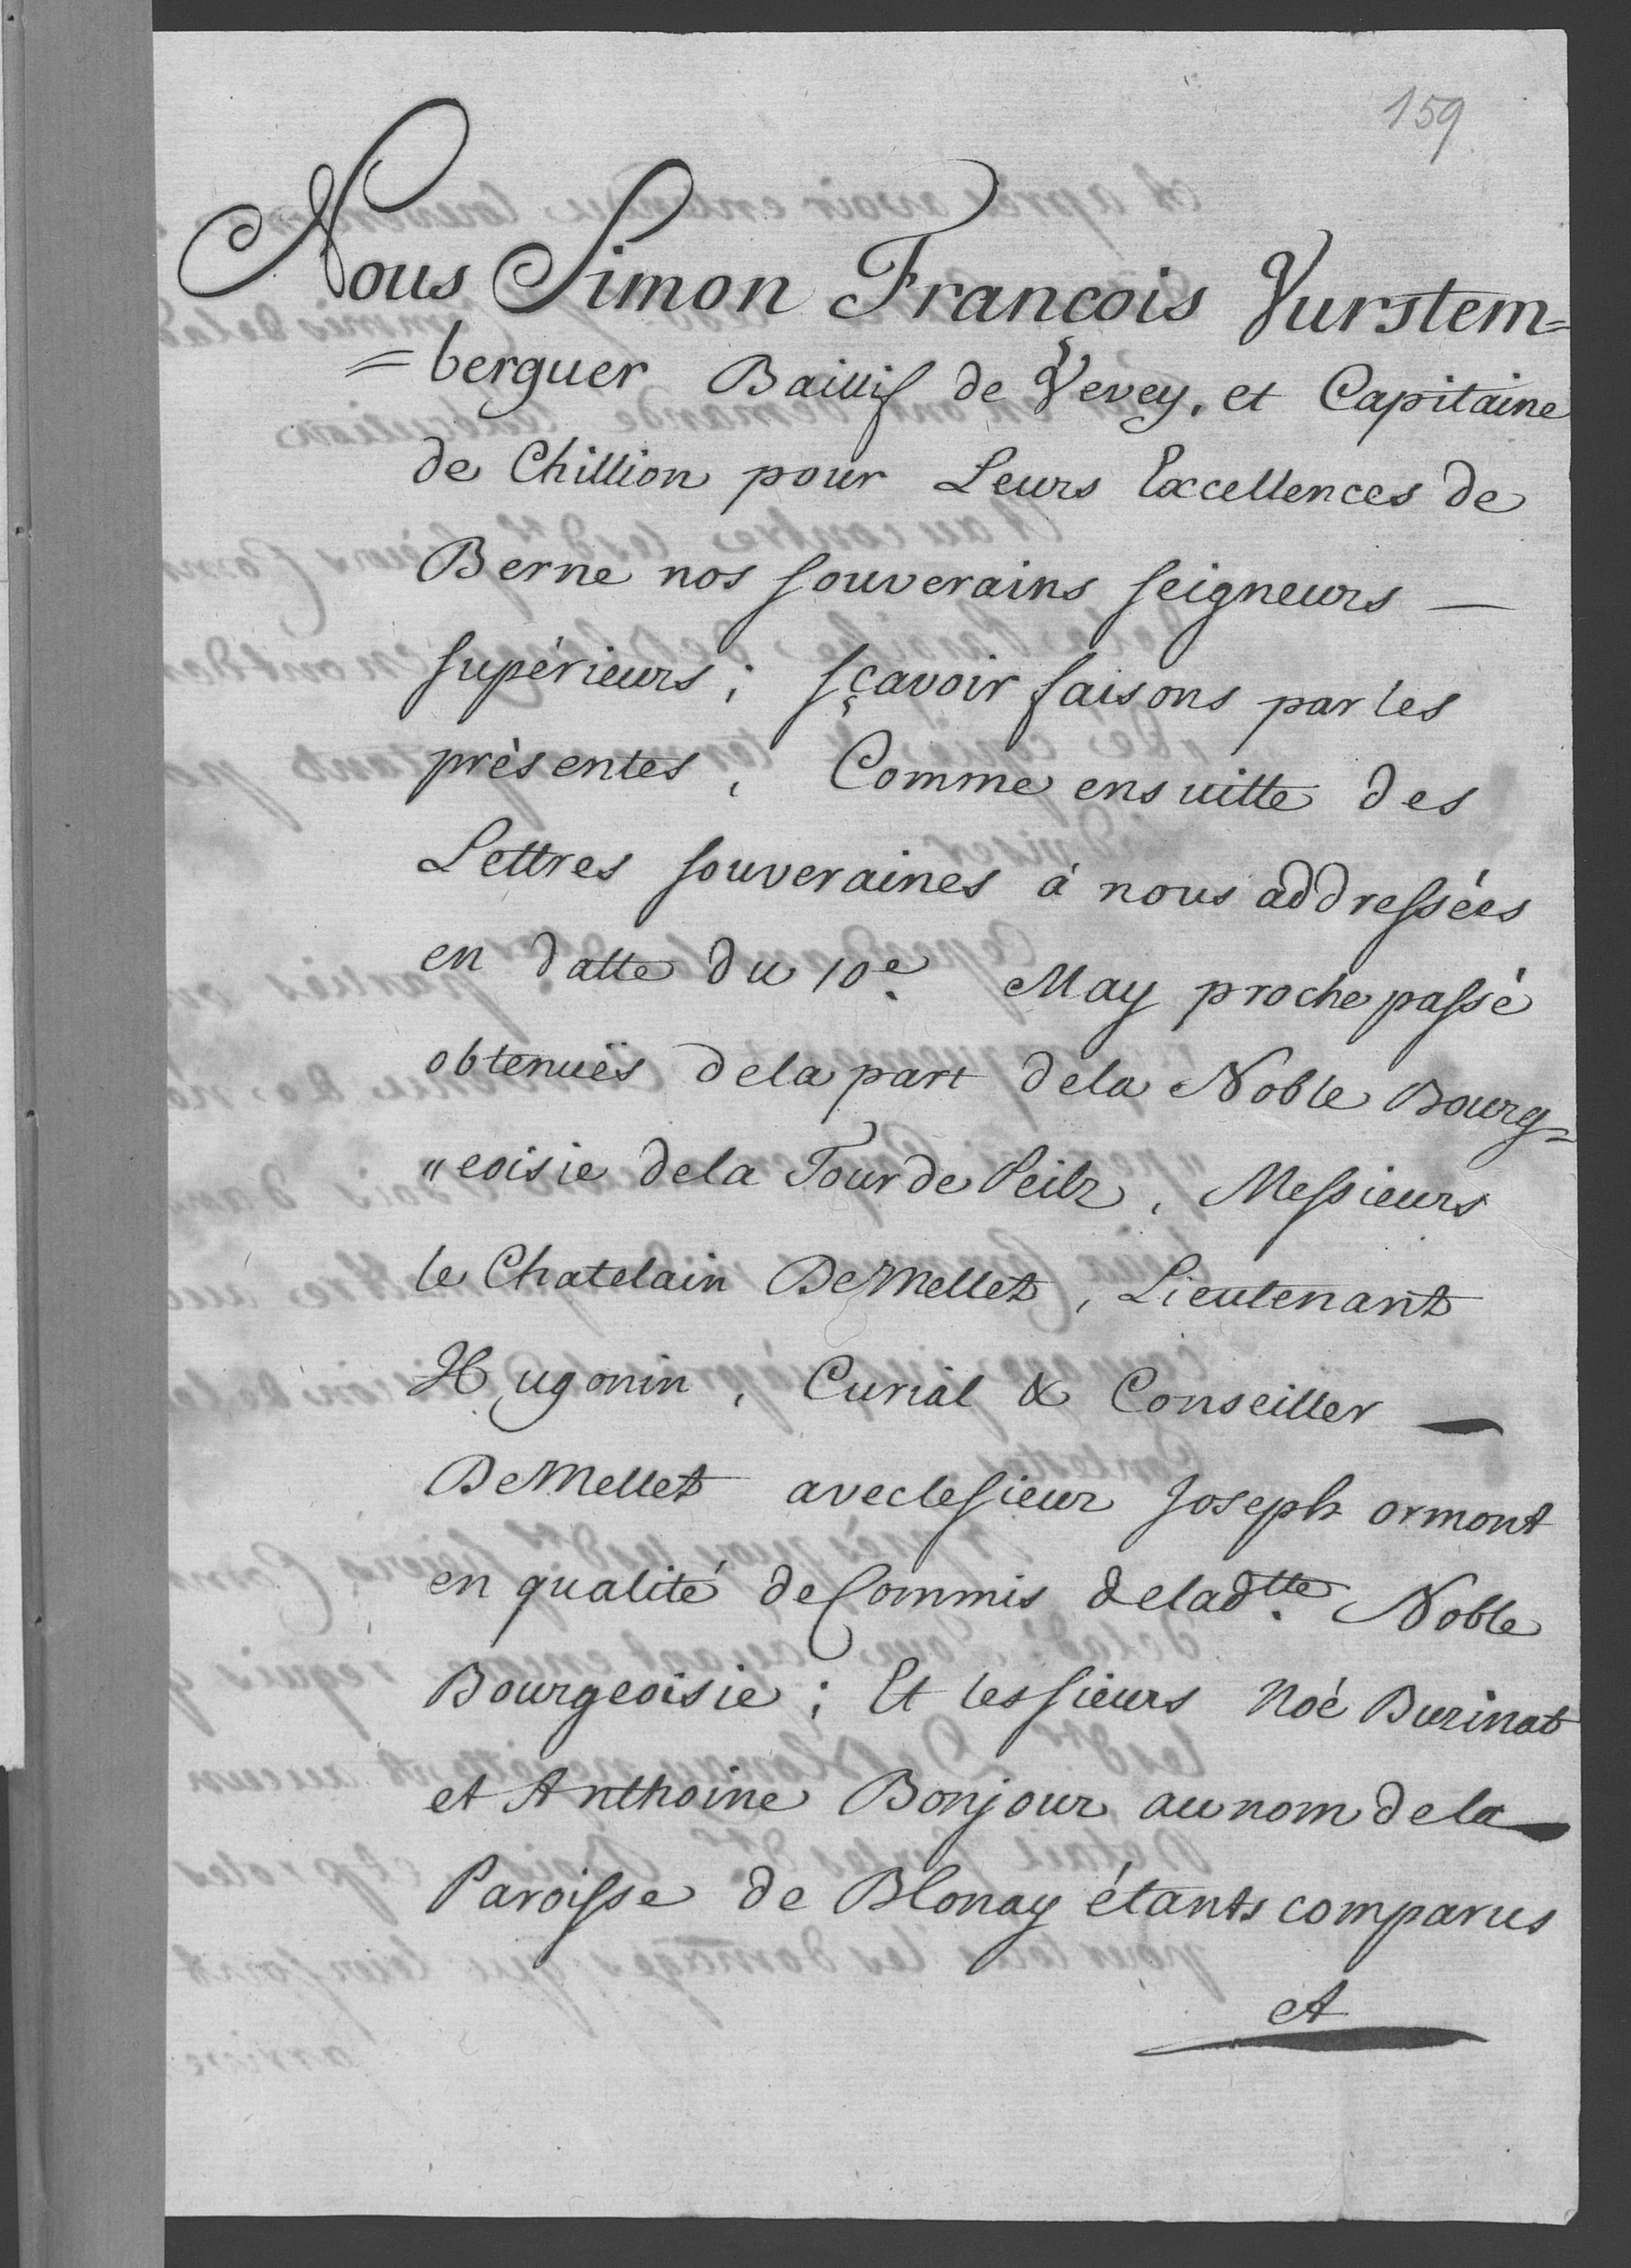 159
Nous Simon François Vurstem=
=berguer Baillif de Vevey, et Capitaine
de Chillion pour Leurs Excellences de
Berne nos souverains seigneurs —
supérieurs; sçavoir faisons par les
présentes, Comme ensuitte des
Lettres souveraines à nous addressées
en datte du 10e. May proche passé
obtenuës dela part dela Noble Bourg=
"eoisie dela Tour de Peilz, Messieurs
le Chatelain DeMellet, Lieutenant
Hugonin, Curial & Conseiller —
DeMellet avec le sieur Joseph ormont
en qualité de Commis delad.tte Noble
Bourgeoisie; Et les sieurs Noé Burinat
et Anthoine Bonjour au nom dela
Paroisse de Blonay étants comparus
et